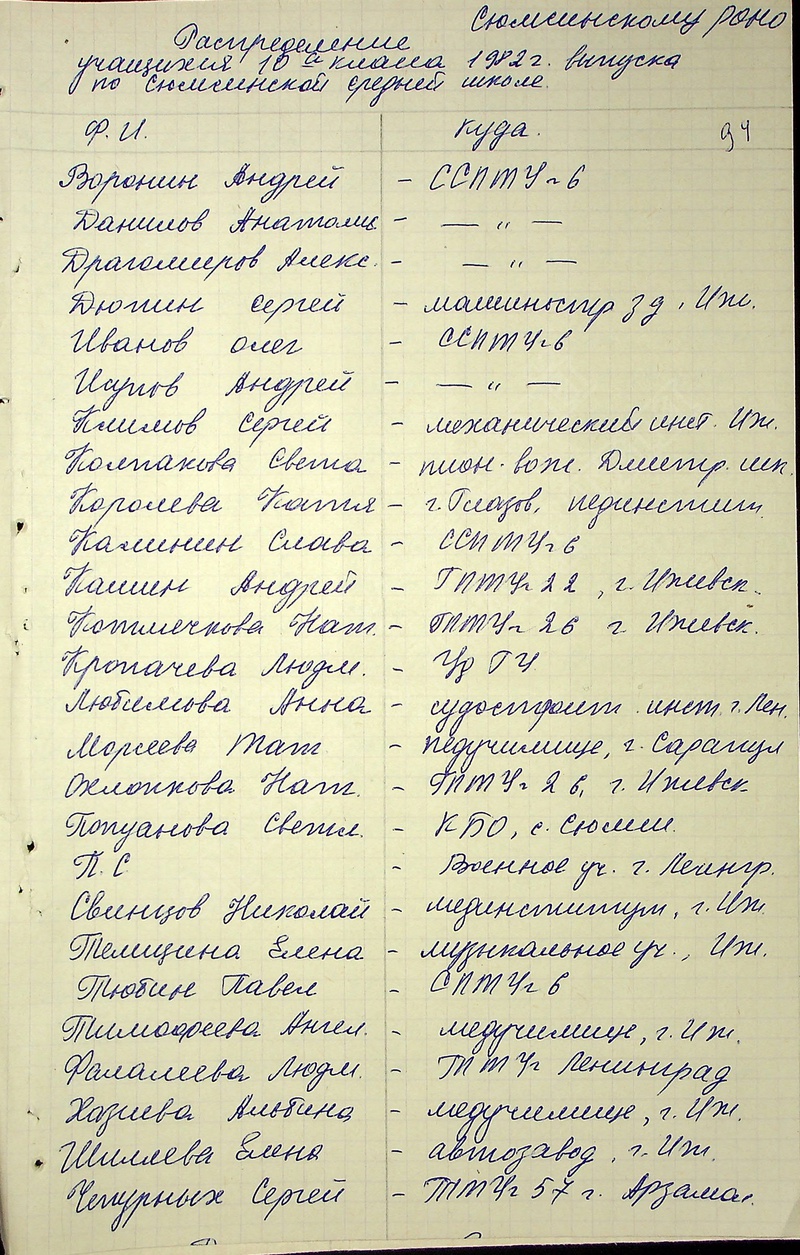 Сюмсинскому роно
Распределение
учащихся 10 а класса 1982 г. выпуска
по Сюмсинской средней школе.
Ф. И. куда. 94
Воронин Андрей - ССПТУ-6
Данилов Анатолий - — " —
Драгомиров Алекс. - — " —
Дюпин Сергей - машиностр з д, Иж.
Иванов Олег - ССПТУ-6
Исупов Андрей - — " —
Климов Сергей - механический инст. Иж.
Колпакова Света - пион. вож. Дмитр. шк.
Королева Катя - г. Глазов, пединстит.
Калинин Слава - ССПТУ-6
Кашин Андрей - ГПТУ-22, г. Ижевск.
Котлечкова Нат. - ГПТУ-26 г. Ижевск.
Кропачева Людм. - Уд ГУ
Любимова Анна - судостроит. инст. г. Лен.
Моржеева Тат - педучилище, г. Сарапул
Охлопкова Нат. - ГПТУ-26, г. Ижевск
Попуанова Светл. - КБО, с. Сюмси.
П. С - Военное уч. г. Ленингр.
Свинцов Николай - мединститут, г. Иж
Телицина Елена - музыкальное уч., Иж.
Тюбин Павел - СПТУ-6
Тимофеева Ангел. - медучилище, г. Иж.
Фалалеева Людм. - ТПТУ Ленинград
Хазиева Альбина - медучилище, г. Иж.
Шиляева Елена - автозавод, г. Иж.
Чепурных Сергей - ТПТУ-57 г. Арзамас.